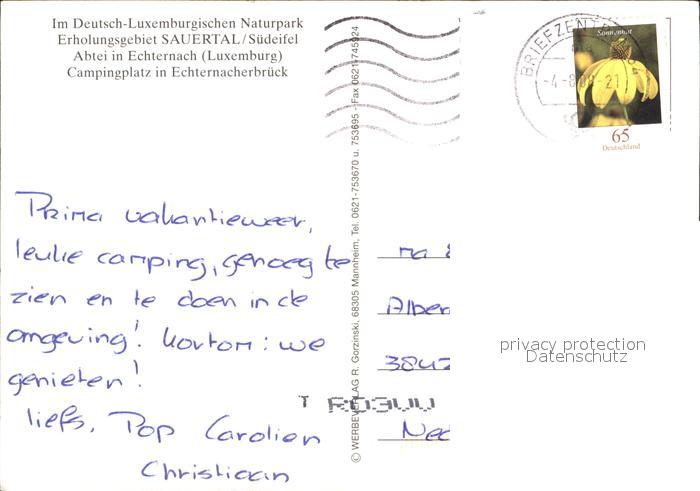 Im Deutsch-Luxemburgischen Naturpark
Erholungsgebiet SAUERTAL/Südeifel
Abtei in Echternach (Luxemburg)
Campingplatz in Echternacherbrück
© WERBEVERLAG R. Gorzinski, 68305 Mannheim, Tel. 0621-753670 u. 753695 - Fax 0621-745924
BRIEFZENT
-4-8
21
Sonnenhut
65
Deutschland
Prima vakantieweer,
leuke camping, genoeg te
zien en te doen in de
omgeving! Kortom: we
genieten!
liefs, Pop Carolien
Christiaan
Alber
3842
Ned
privacy protection
Datenschutz